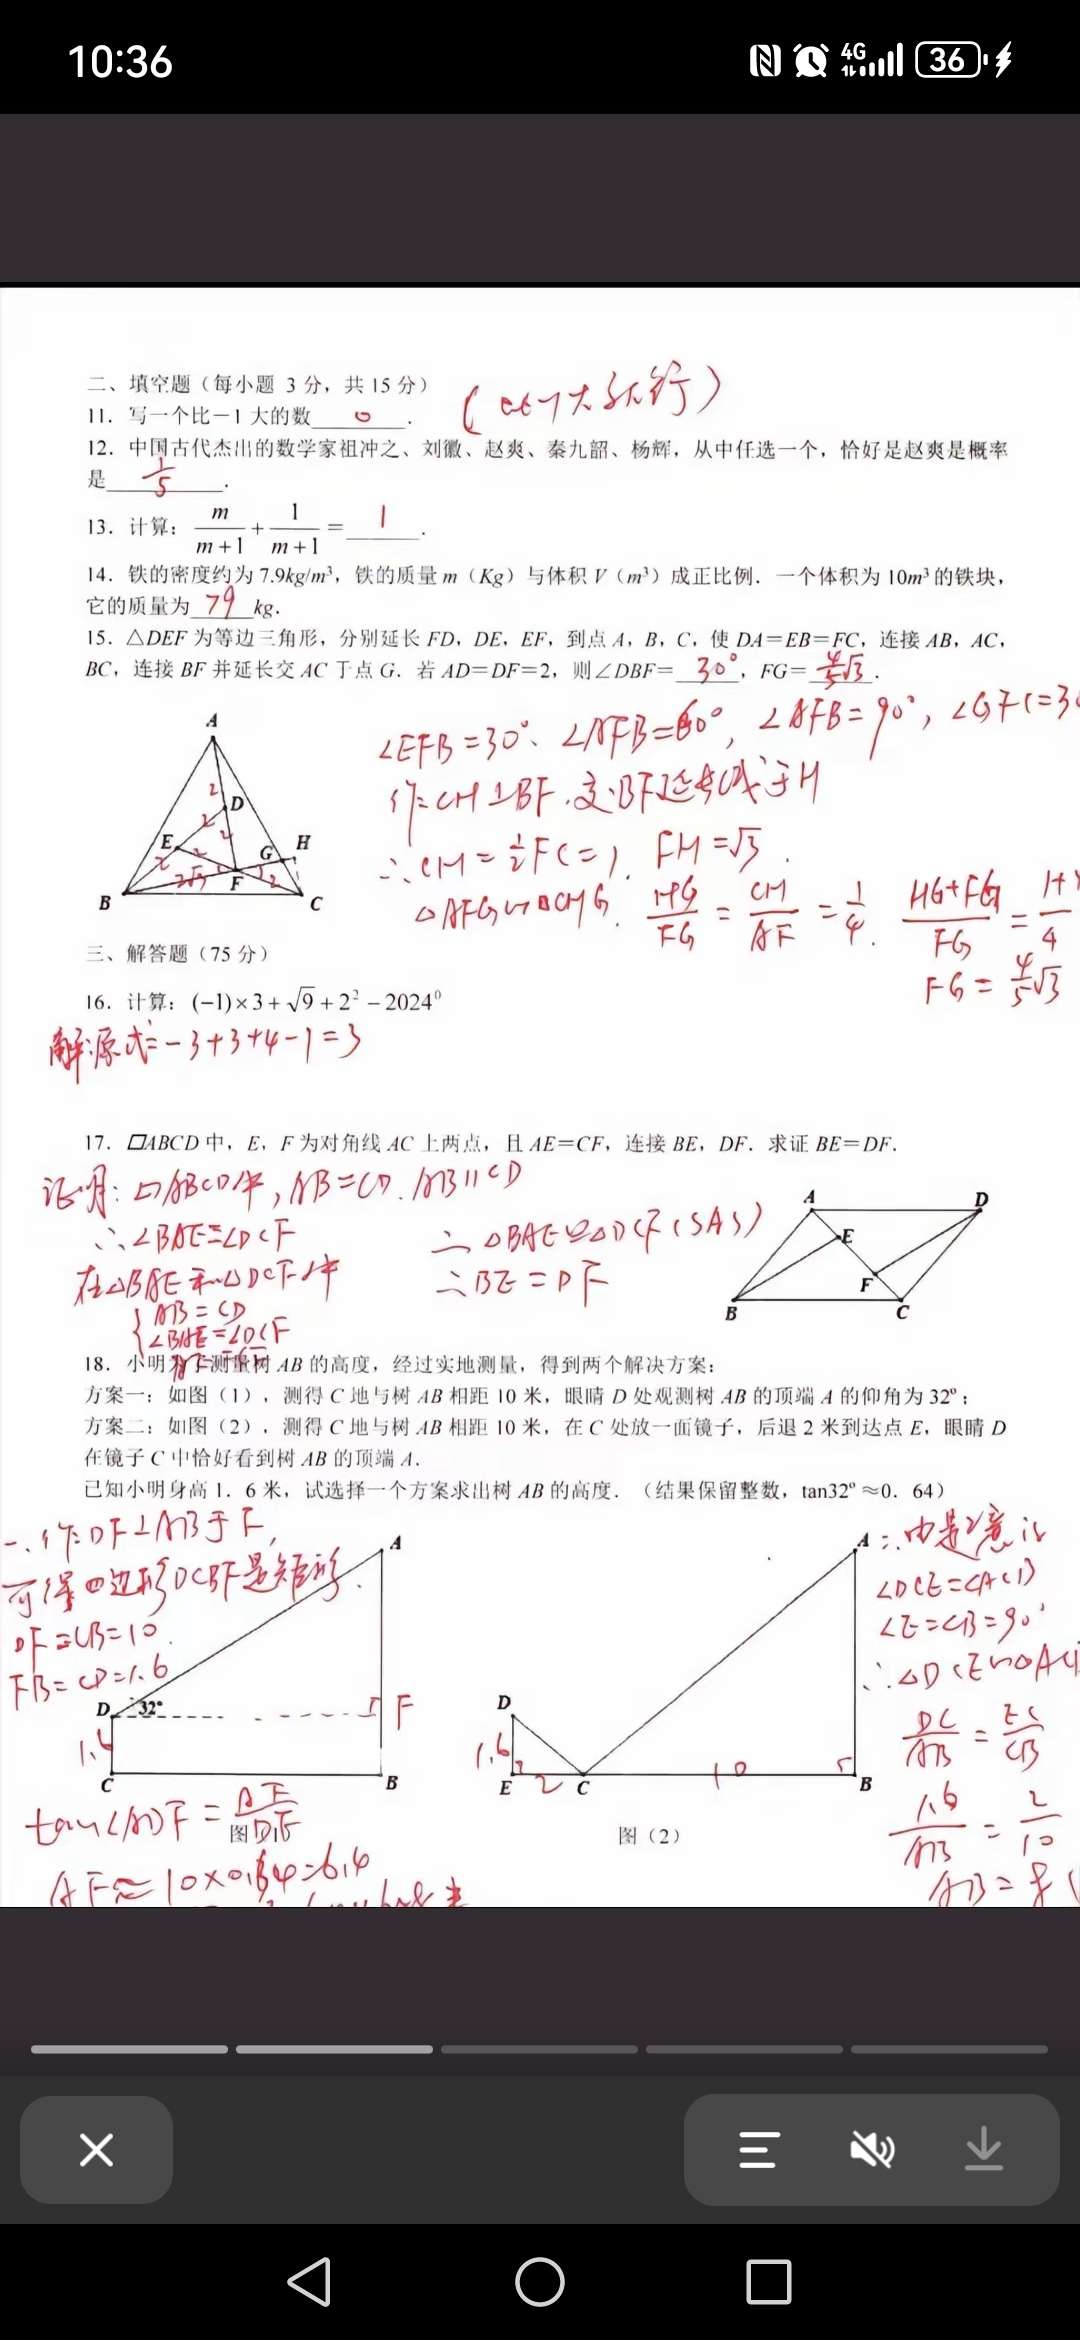 10:36
4G
36
二、填空题（每小题 3 分，共 15 分）
（比-1大就行）
11．写一个比－1 大的数 0 ．
12．中国古代杰出的数学家祖冲之、刘徽、赵爽、秦九韶、杨辉，从中任选一个，恰好是赵爽是概率
是 1/5 ．
13．计算：m/(m+1) + 1/(m+1) = 1 ．
14．铁的密度约为 7.9kg/m³，铁的质量 m（Kg）与体积 V（m³）成正比例．一个体积为 10m³ 的铁块，
它的质量为 79 kg．
15．△DEF 为等边三角形，分别延长 FD，DE，EF，到点 A，B，C，使 DA＝EB＝FC，连接 AB，AC，
BC，连接 BF 并延长交 AC 于点 G．若 AD＝DF＝2，则∠DBF＝ 30° ，FG＝ 4/5√3 ．
∠EFB=30°、∠AFB=60°，∠AFB=90°，∠GFC=30
作CH⊥BF，交BF延长线于H
∴CH=1/2FC=1，FH=√3．
△AFG∽△CHG．HG/FG=CH/AF=1/4．HG+FG/FG=1+1/4
FG=4/5√3
A
2
D
2
2
E
2
G
H
2
2√3
F
2
B
C
三、解答题（75 分）
16．计算：(−1)×3+√9+2²−2024⁰
解:原式=-3+3+4-1=3
17．▱ABCD 中，E，F 为对角线 AC 上两点，且 AE＝CF，连接 BE，DF．求证 BE＝DF．
证明：▱ABCD中，AB=CD．AB∥CD
∴∠BAE=∠DCF
在△BAE和△DCF中
AB=CD
∠BAE=∠DCF
∴△BAE≌△DCF（SAS）
∴BE=DF
A
D
E
F
B
C
18．小明为了测量树 AB 的高度，经过实地测量，得到两个解决方案：
方案一：如图（1），测得 C 地与树 AB 相距 10 米，眼睛 D 处观测树 AB 的顶端 A 的仰角为 32°；
方案二：如图（2），测得 C 地与树 AB 相距 10 米，在 C 处放一面镜子，后退 2 米到达点 E，眼睛 D
在镜子 C 中恰好看到树 AB 的顶端 A．
已知小明身高 1．6 米，试选择一个方案求出树 AB 的高度．（结果保留整数，tan32°≈0．64）
一、作DF⊥AB于F，
可得四边形DCBF是矩形．
DF=CB=10
FB=CD=1.6
A
D
32°
F
1.6
C
B
tan∠ADF=AF/DF
AF≈10×0.64=6.4
A
D
1.6
E
2
C
10
B
图（2）
二、由题意得
∠DCE=∠ACB
∠E=∠B=90°
∴△DCE∽△AC
DE/AB=EC/CB
1.6/AB=2/10
AB=8